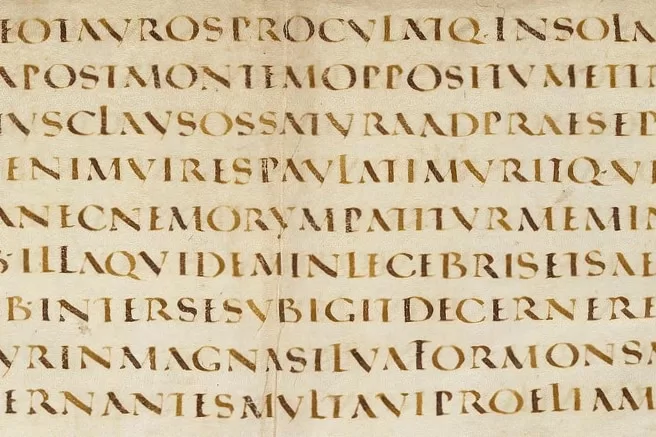 EOTAVROSPROCVLATQ·INSOLA
APOSTMONTEMOPPOSITVMETT
TVSCLAVSOSSATVRAADPRAESEP
ENIMVIRESPAVLATIMVRITQ·VI
ANECNEMORVMPATITVRMEMIN
S·ILLAQVIDEMINLECEBRISETSAE
B·INTERSESVBIGITDECERNERE
VRINMAGNASILVAFORMONSA
ERNANTESMVLTAVIPROELIAM